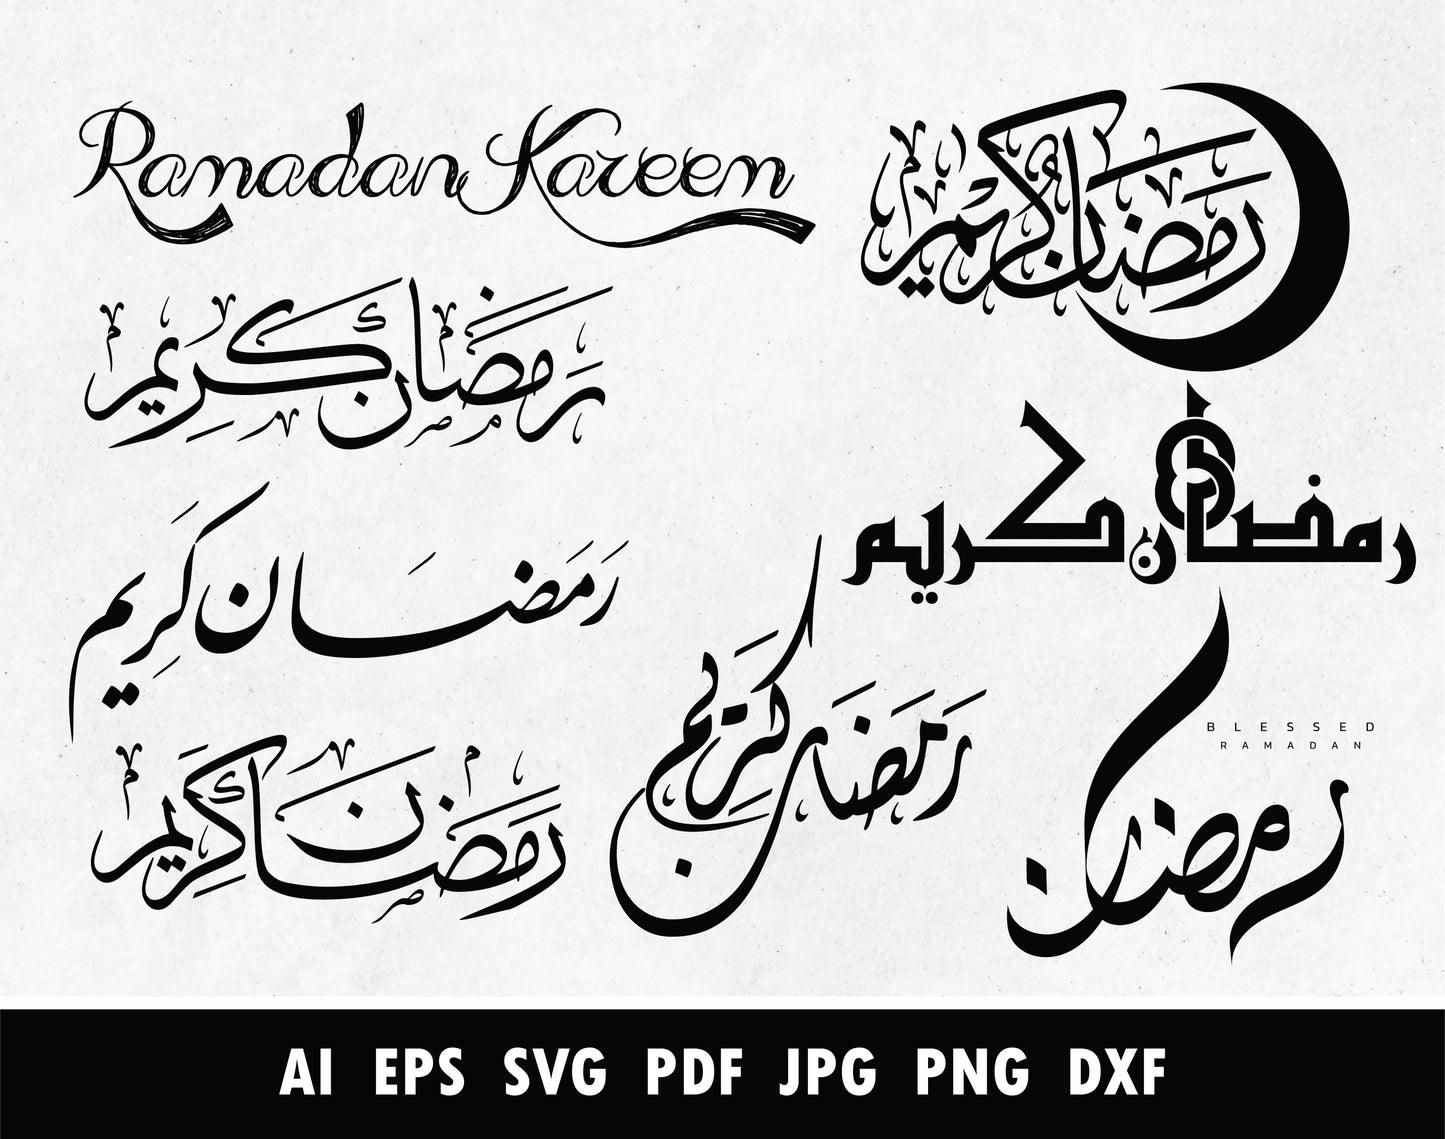 Ramadan Kareem
رمضان كريم
رَمَضَان كَرِيم
رمضان كريم
رَمَضَان كَرِيم
رَمَضَان كَرِيم
رَمَضَان كَرِيم
BLESSED
RAMADAN
رمضان
AI EPS SVG PDF JPG PNG DXF